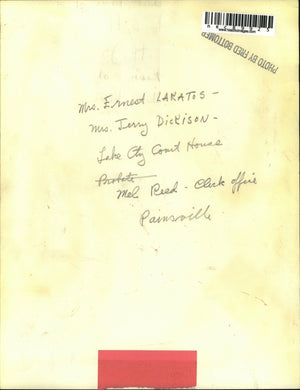 PHOTO BY FRED BOTTOMER
Mrs. Ernest LAKATOS -
Mrs. Jerry DICKISON -
Lake Cty Court House
Probate
Mel Reed - Clerk office
Painsville